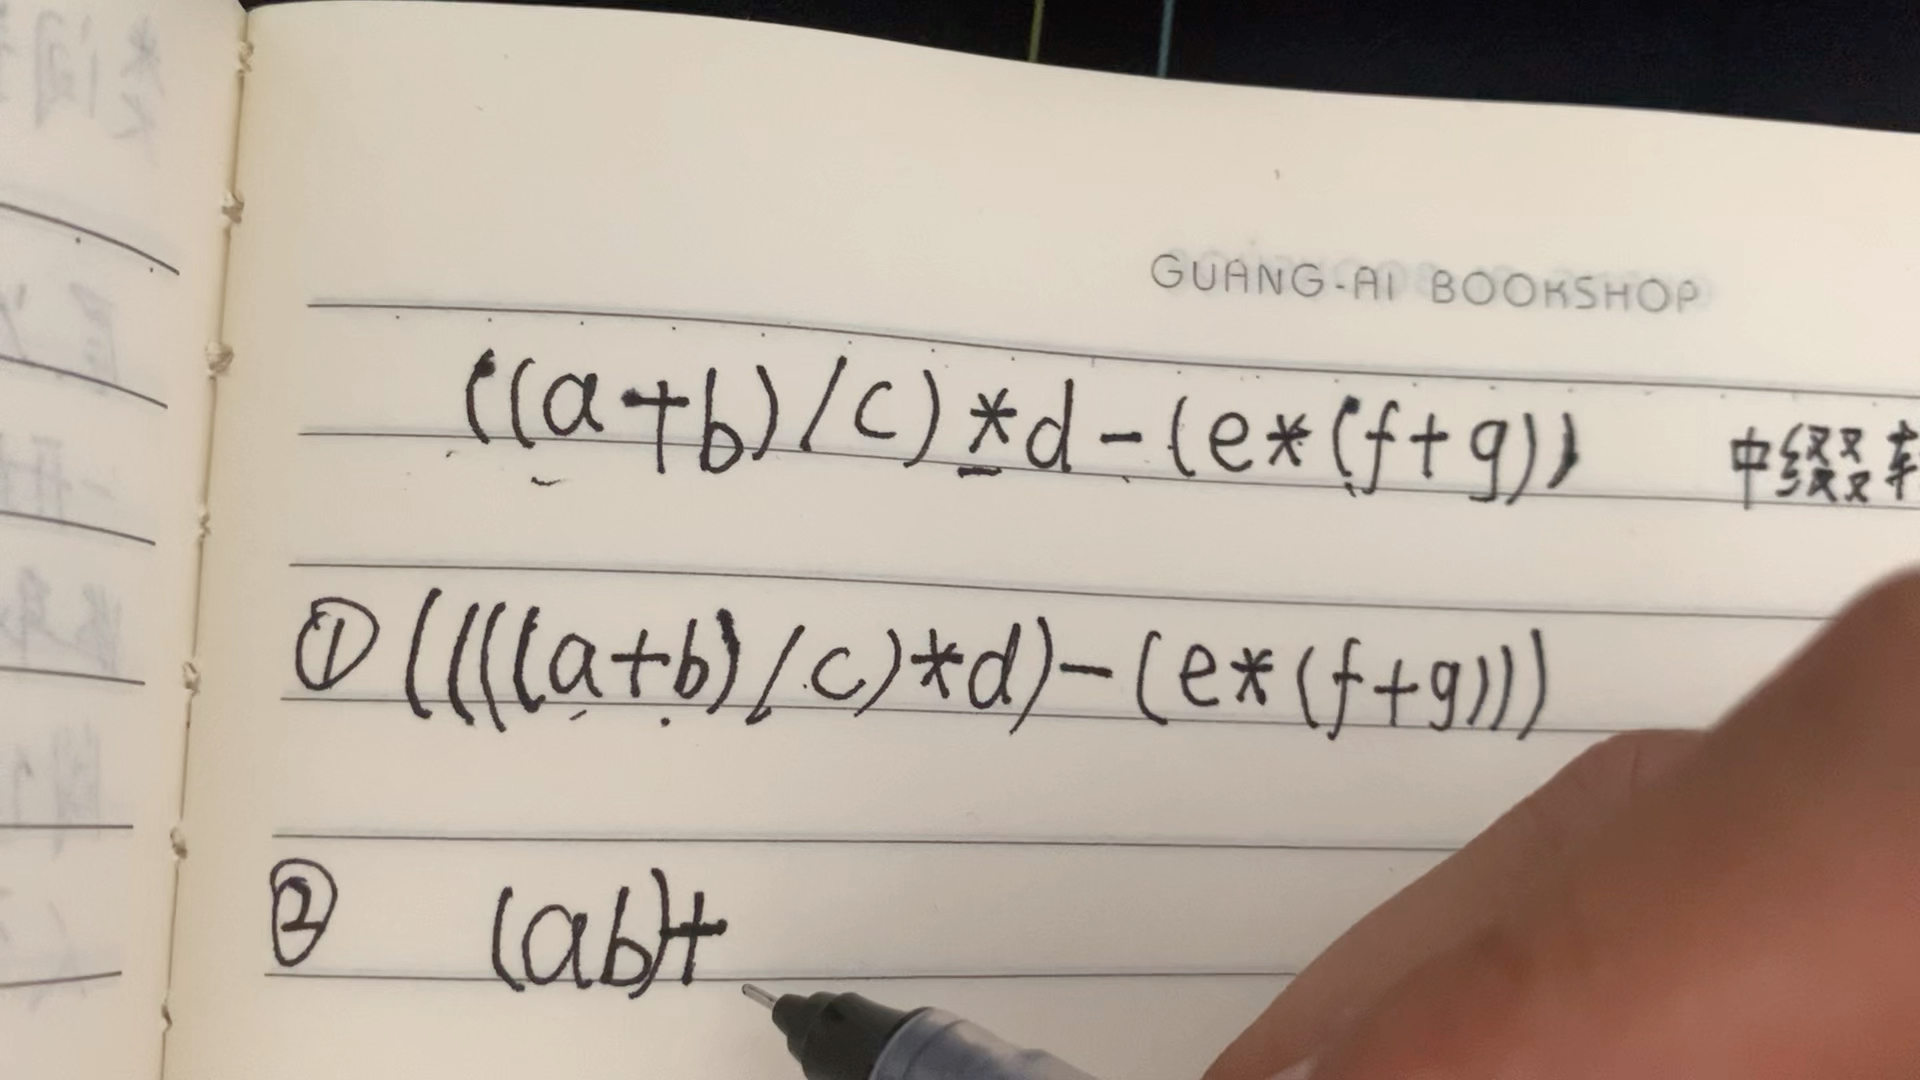 GUANG-AI BOOKSHOP
((a+b)/c)*d-(e*(f+g)) 中缀
① ((((a+b)/c)*d)-(e*(f+g)))
② (ab)+